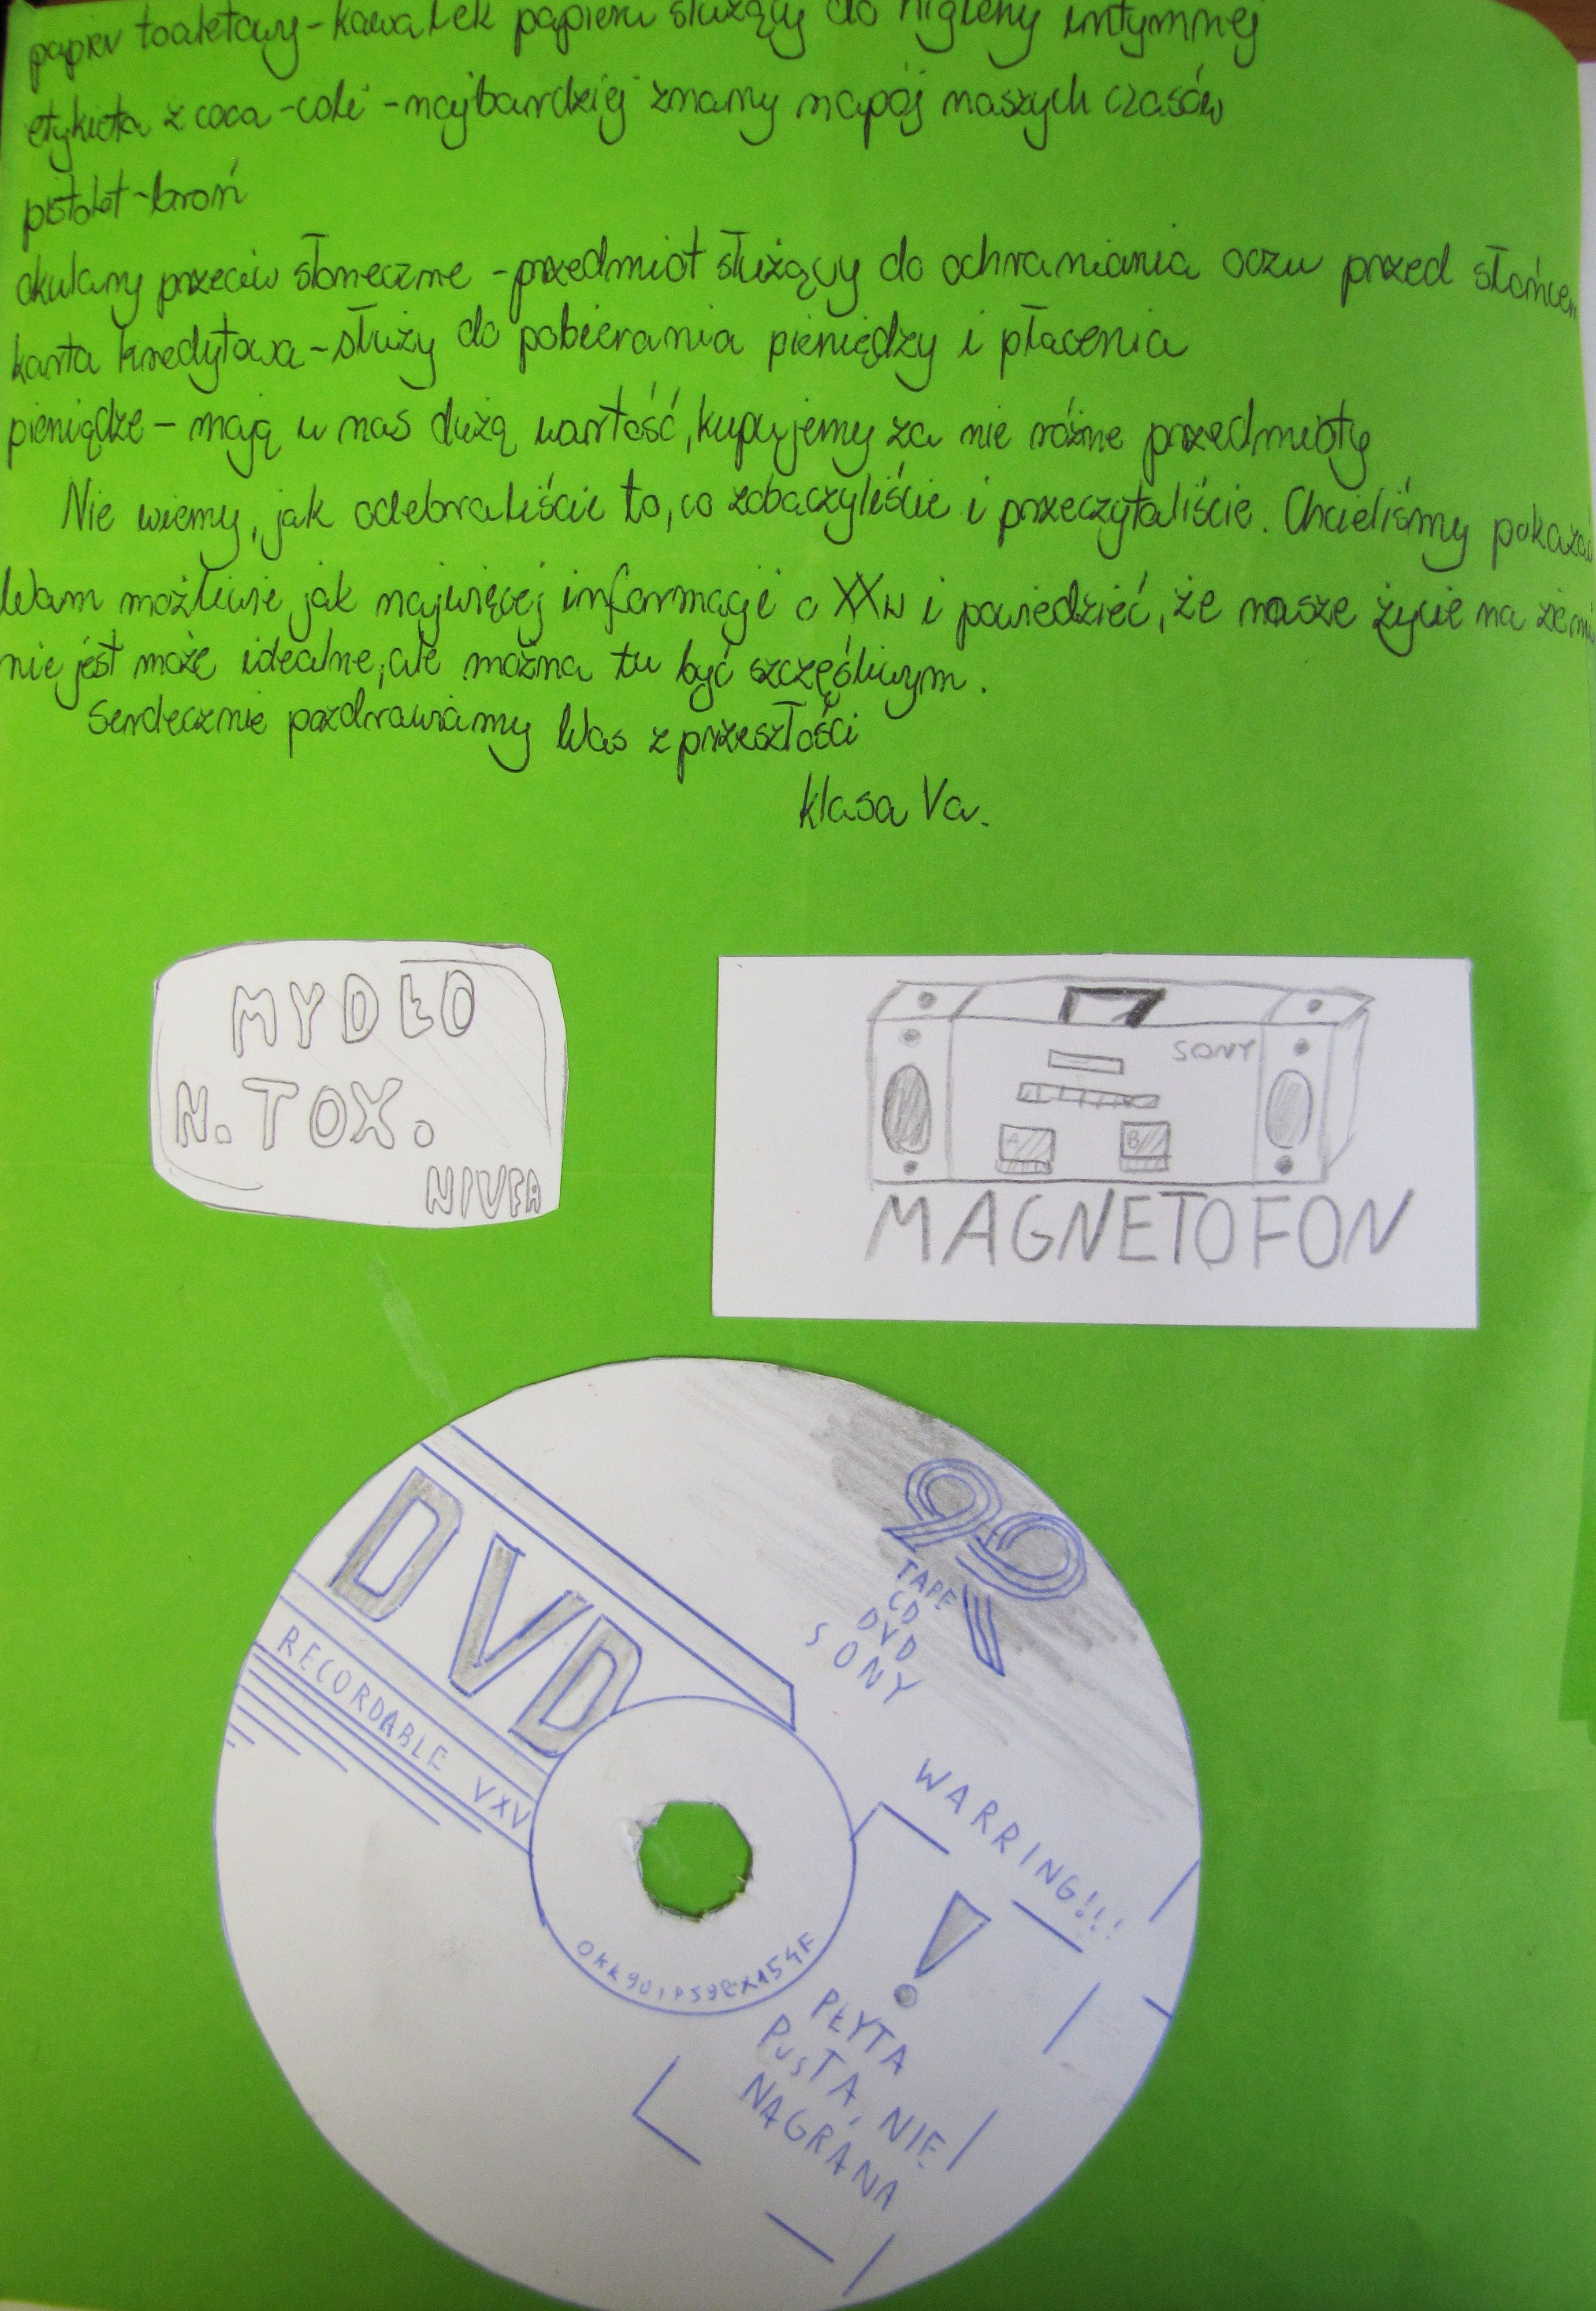 papier toaletowy - kawałek papieru służący do higieny intymnej
etykieta z coca - coli - najbardziej znany napój naszych czasów
pistolet - broń
okulary przeciw słoneczne - przedmiot służący do ochraniania oczu przed słońcem
karta kredytowa - służy do pobierania pieniędzy i płacenia
pieniądze - mają u nas dużą wartość, kupujemy za nie różne przedmioty
Nie wiemy, jak odebraliście to, co zobaczyliście i przeczytaliście. Chcieliśmy pokazać
Wam możliwie jak najwięcej informacji o XXw i powiedzieć, że nasze życie na ziemi
nie jest może idealne, ale można tu być szczęśliwym.
Serdecznie pozdrawiamy Was z przeszłości
klasa Va.
MYDŁO
N. TOX.
NIVEA
SONY
A B
MAGNETOFON
DVD
RECORDABLE VXV
90
TAPE
CD
DVD
SONY
WARRING!!!
!
PŁYTA
PusTA, NIE
NAGRANA